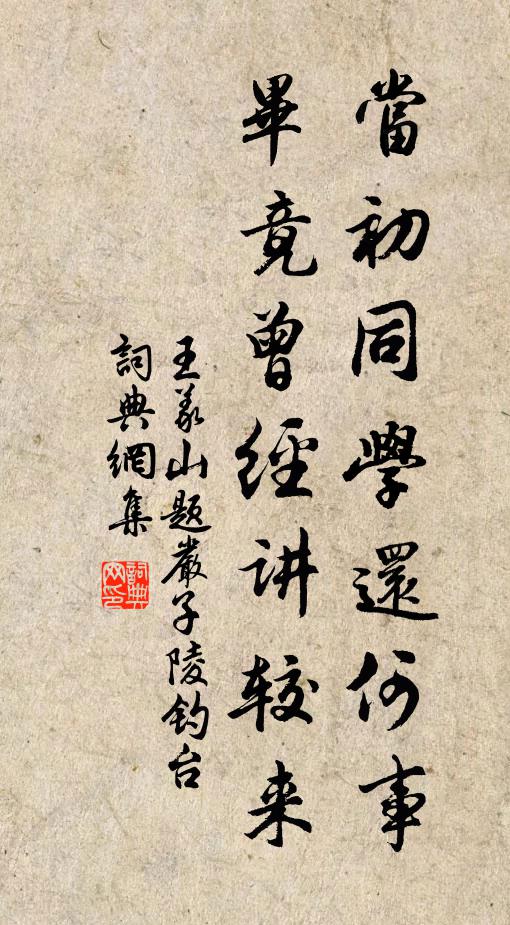 當初同學還何事
畢竟曾經讲较来
王義山题嚴子陵钓台
詞典網集
詞典网印